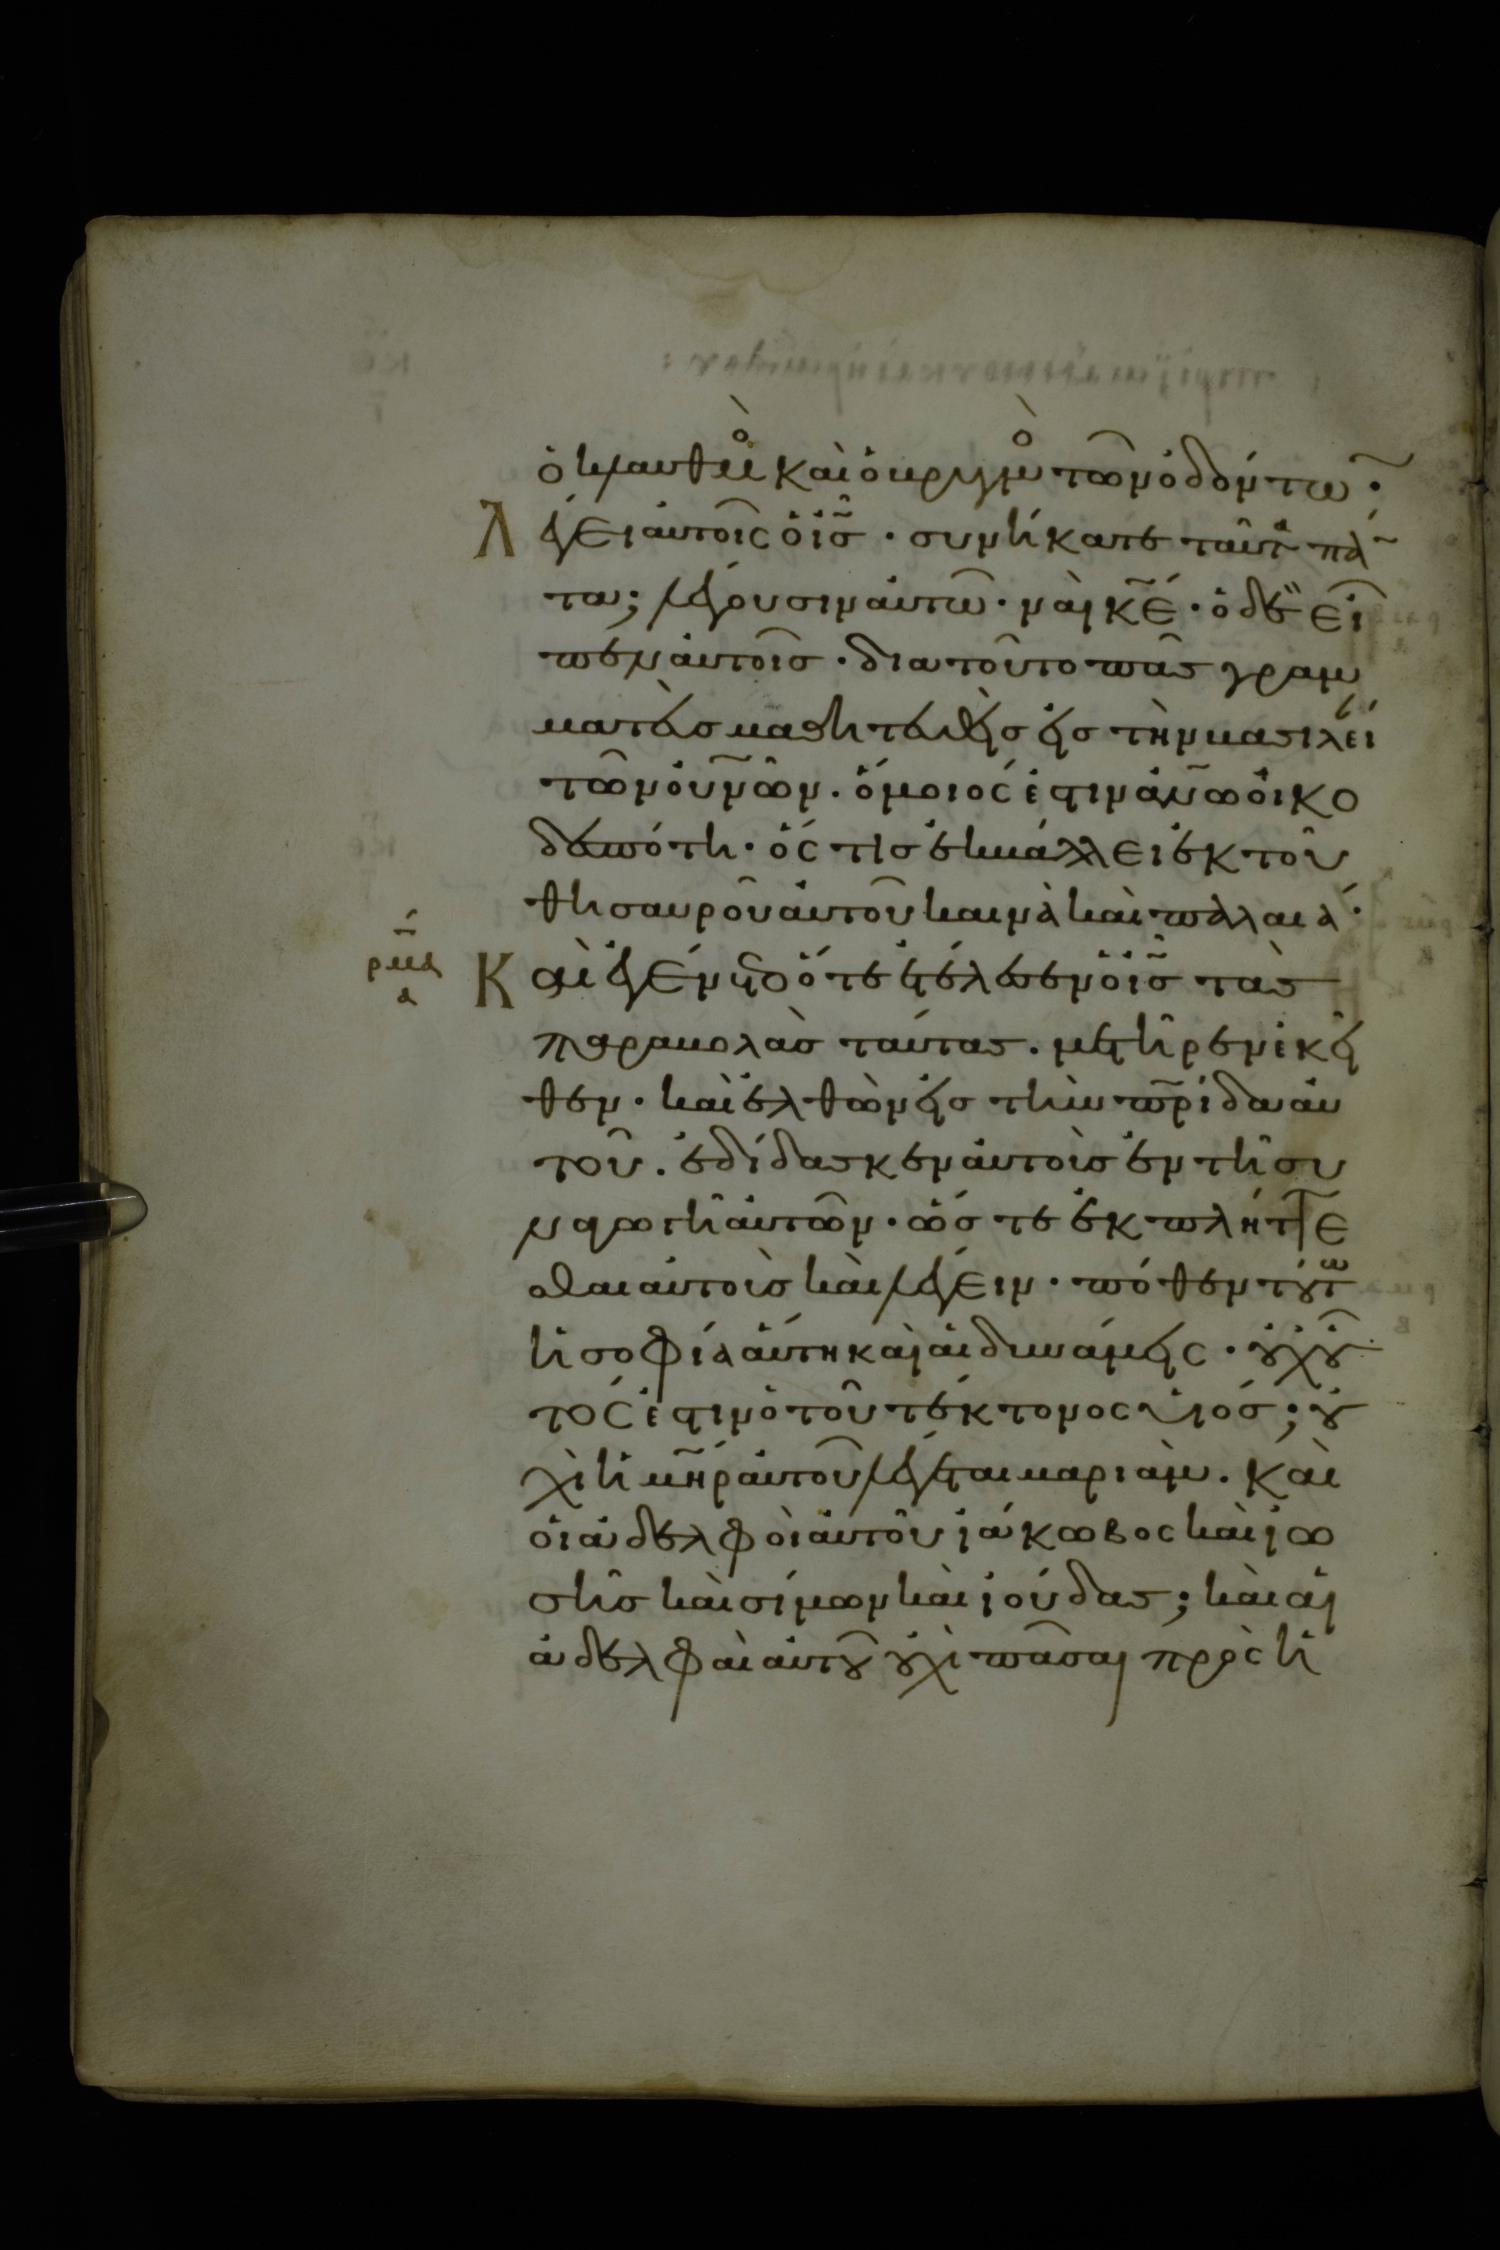 ὁ κλαυθμὸ καὶ ὁ βρυγμὸ τῶν ὀδόντω·
Λέγει αὐτοῖς ὁ ις̃· συνήκατε ταῦτα πά
τα; λέγουσιν αὐτῶ· ναὶ κ̃ε· ὁ δὲ εἶ
πεν αὐτοῖσ· διατοῦτο πᾶσ γραμ
ματεὺσ μαθητευθεὶσ εἰσ τὴν βασιλεί
τῶν οὐν̃ῶν. ὅμοιός ἐστιν ἀν̃ω οἰκο
δεσπότη· ὅς τισ ἐκβάλλει ἐκ τοῦ
θησαυροῦ αὐτοῦ καινὰ καὶ παλαιά·
ρμα
α
Καὶ ἐγένετο ὅτε ἐτέλεσεν ὁ ις̃ τὰσ
παραβολὰσ ταύτασ. μετῆρεν ἐκεῖ
θεν· καὶ ἐλθὼν εἰσ τὴν πρ̃ίδα αὐ
τοῦ. ἐδίδασκεν αὐτοὺσ ἐν τῆ συ
ναγωγῆ αὐτῶν· ὥστε ἐκπλήττε
σθαι αὐτοὺσ καὶ λέγειν· πόθεν τούτω
ἡ σοφία αὕτη καὶ αἱ δυνάμεις· οὐχ οὗ
τός ἐστιν ὁ τοῦ τέκτονος υἱός; οὐ
χὶ ἡ μ̃ηρ αὐτοῦ λέγεται μαριὰμ. καὶ
οἱ ἀδελφοὶ αὐτοῦ ἰάκωβος καὶ ἰω
σῆσ καὶ σίμων καὶ ἰούδασ; καὶ αἱ
ἀδελφαὶ αὐτοῦ οὐχὶ πᾶσαι πρὸς ἡ